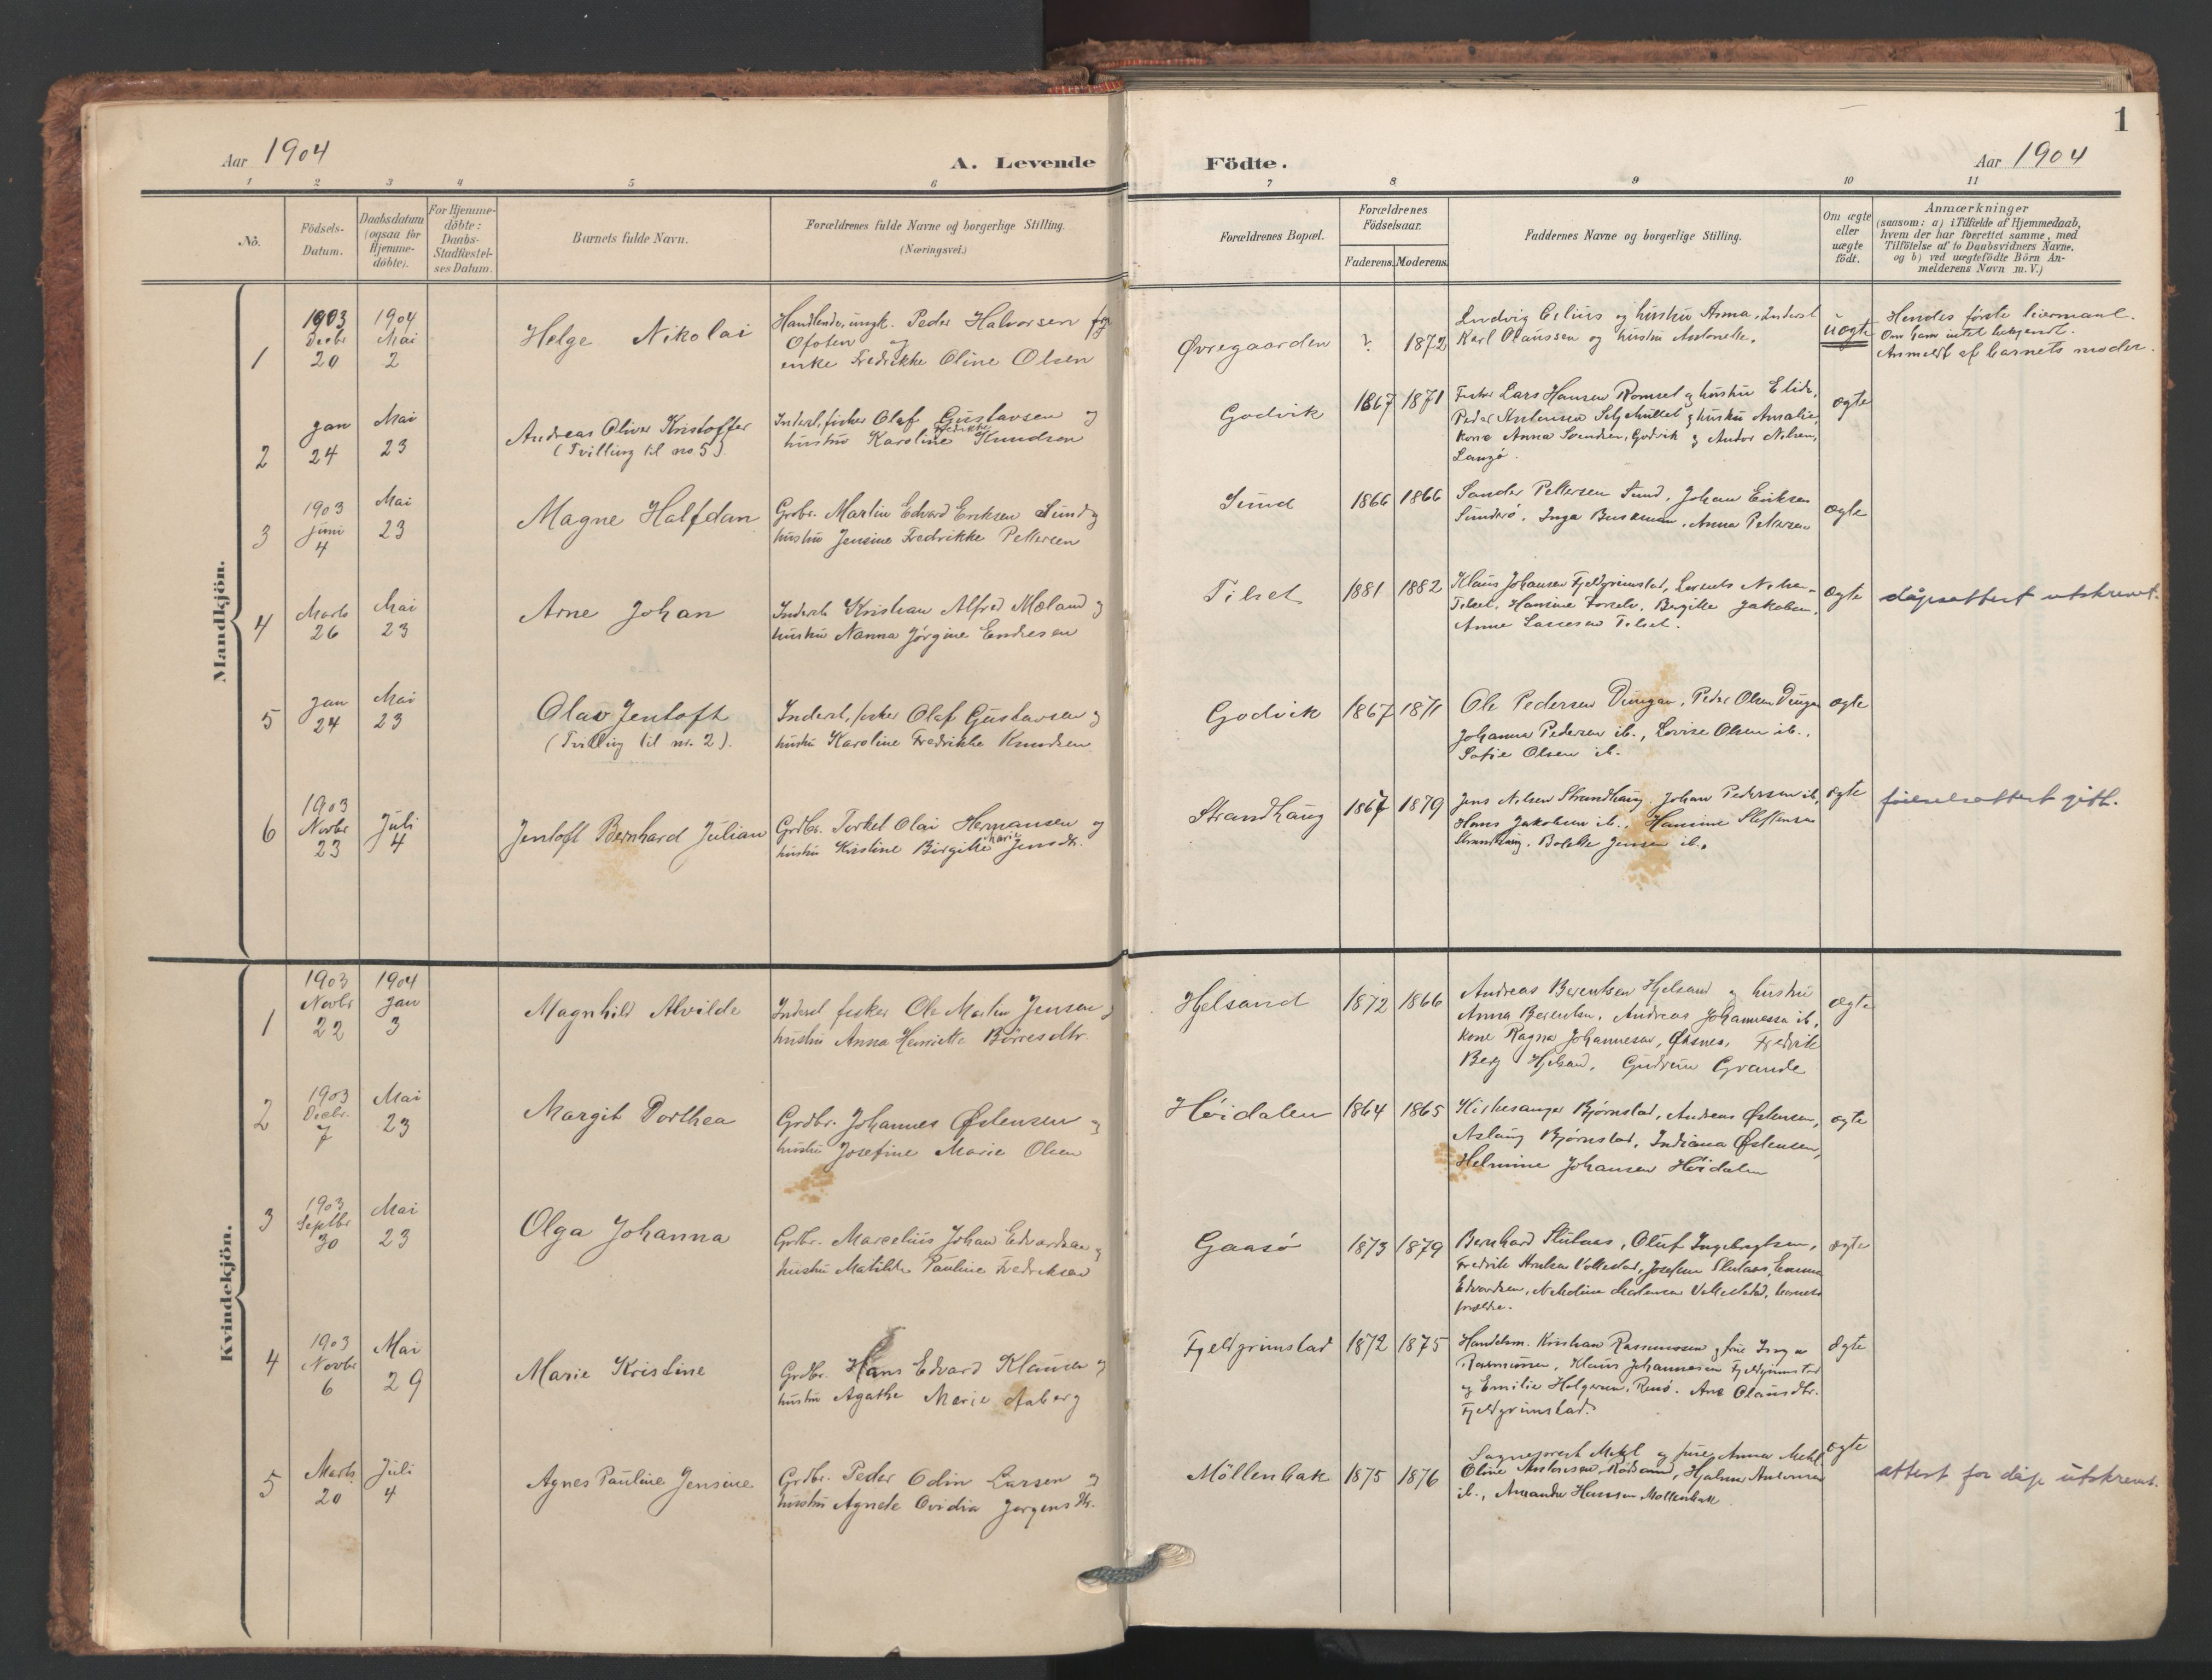 1
Aar 1904
A. Levende Födte.
Aar 1904
1 2 3 4 5 6 7 8 9 10 11
Nô.
Födsels-
Datum.
Daabsdatum
(ogsaa for
Hjemme-
döbte).
For Hjemme-
döbte:
Daabs-
Stadfæstel-
ses Datum.
Barnets fulde Navn.
Forældrenes fulde Navne og borgerlige Stilling.
(Næringsvei.)
Forældrenes Bopæl.
Forældrenes
Födselsaar.
Faderens. Moderens.
Faddernes Navne og borgerlige Stilling.
Om ægte
eller
uægte
födt.
Anmærkninger
(saasom: a) i Tilfælde af Hjemmedaab,
hvem der har forrettet samme, med
Tilföielse af to Daabsvidners Navne.
og b) ved uægtefödte Börn An-
melderens Navn m. V.)
Mandkjön.
1
1903
Decbr
20
1904
Mai
2
Helge Nikolai
Handlende, ungk. Peder Halvorsen
Ofoten og
enke Fredrikke Oline Olsen
Øvregaarden
?
1872
Ludvig og hustru Anna, Inderst
Karl Olaussen og hustru Antonette.
uægte
Hendes første leiermaal.
Om ham intet bekjendt.
Anmeldt af barnets moder.
2
Jan
24
Mai
23
Andreas Oliver Kristoffer
(Tvilling til no 5)
Inderst, fisker Olaf Gustavsen og
hustru Karoline Fredrikke Knudsen
Godvik
1867
1871
Lars Hansen og hustru Elida,
Peder Antonsen og hustru Amalie,
kone Anna Svendsen, Godvik og Andor Nilsen,
Langö.
ægte
3
1903
Juni
4
Mai
23
Magne Halfdan
Grdbr. Martin Edvard Eriksen Sund og
hustru Jensine Fredrikke Pettersen
Sund
1866
1866
Sander Pettersen Sund, Johan Eriksen
Sunderö, Inga, Anna Pettersen
ægte
4
Marts
26
Mai
23
Arne Johan
Inderst Kristian Alfred Mæland og
hustru Nanna Jörgine Endresen
Tilset
1881
1882
Klaus Johansen Fjeldgrimstad,
Tilset, Hansine, Bergitte Jakobsen,
Anne Larsen Tilset.
ægte
dåpsattest utskrevet.
5
Jan
24
Mai
23
Olav Jentoft
(Tvilling til nr. 2).
Inderst, fisker Olaf Gustavsen og
hustru Karoline Fredrikke Knudsen
Godvik
1867
1871
Ole Pedersen, Peder Olsen
Johanna Pedersen ib., Lovise Olsen ib.,
Sofie Olsen ib.
ægte
6
1903
Novbr
23
Juli
4
Jentoft Bernhard Julian
Grdbr. Torkel Olai Hermansen og
hustru Kristine Birgitte Marie Jensdtr.
Strandhaug
1867
1879
Jens Nilsen Strandhaug, Johan Pedersen ib,
Hans Jakobsen ib., Hansine Steffensen
Strandhaug, Bolette Jensen ib.
ægte
fødselsattest gitt.
Kvindekjön.
1
1903
Novbr
22
1904
Jan
3
Magnhild Alvilde
Inderst fisker Ole Martin Jensen og
hustru Anna Henriette Börresdtr.
Hjelsand
1872
1866
Andreas Berentsen Hjelsand og hustru
Anna Berentsen, Andreas Johannessen ib,
kone Ragna Johannesen, Öksnes, Fredrik
Berg Hjelsand, Gudrun Grande
ægte
2
1903
Decbr.
7
Mai
23
Margit Dorthea
Grdbr. Johannes Østensen og
hustru Josefine Marie Olsen
Höidalen
1864
1865
Kirkesanger Björnstad, Andreas Østensen,
Aslaug Björnstad, Indiana Østensen,
Helmine Johansen Höidalen
ægte
3
1903
Septbr
30
Mai
23
Olga Johanna
Grdbr. Marcelius Johan Edvardsen og
hustru Matilde Pauline Fredriksen
Gaasö
1873
1879
Bernhard, Oluf Ingebrigtsen,
Fredrik, Josefine, Emma
Edvardsen, barnets
forældre.
ægte
4
1903
Novbr
6
Mai
29
Marie Kristine
Grdbr. Hans Edvard Klausen og
hustru Agathe Marie Aaberg
Fjeldgrimstad
1872
1875
Handelsm. Kristian Rasmussen og frue Inga
Rasmussen, Klaus Johannesen Fjeldgrimstad
og Emilie Holgersen, Renö. Ane Olausdtr.
Fjeldgrimstad.
ægte
5
Marts
20
Juli
4
Agnes Pauline Jensine
Grdbr. Peder Odin Larsen og
hustru Agnete Ovidia Jørgensdtr.
Möllenbak
1875
1876
Sogneprest Mehl og frue Anna Mehl
Oline Antonsen, Hjalmar Antonsen
ib., Amanda Hansen Möllenbak
ægte
attest for dåp utskrevet.